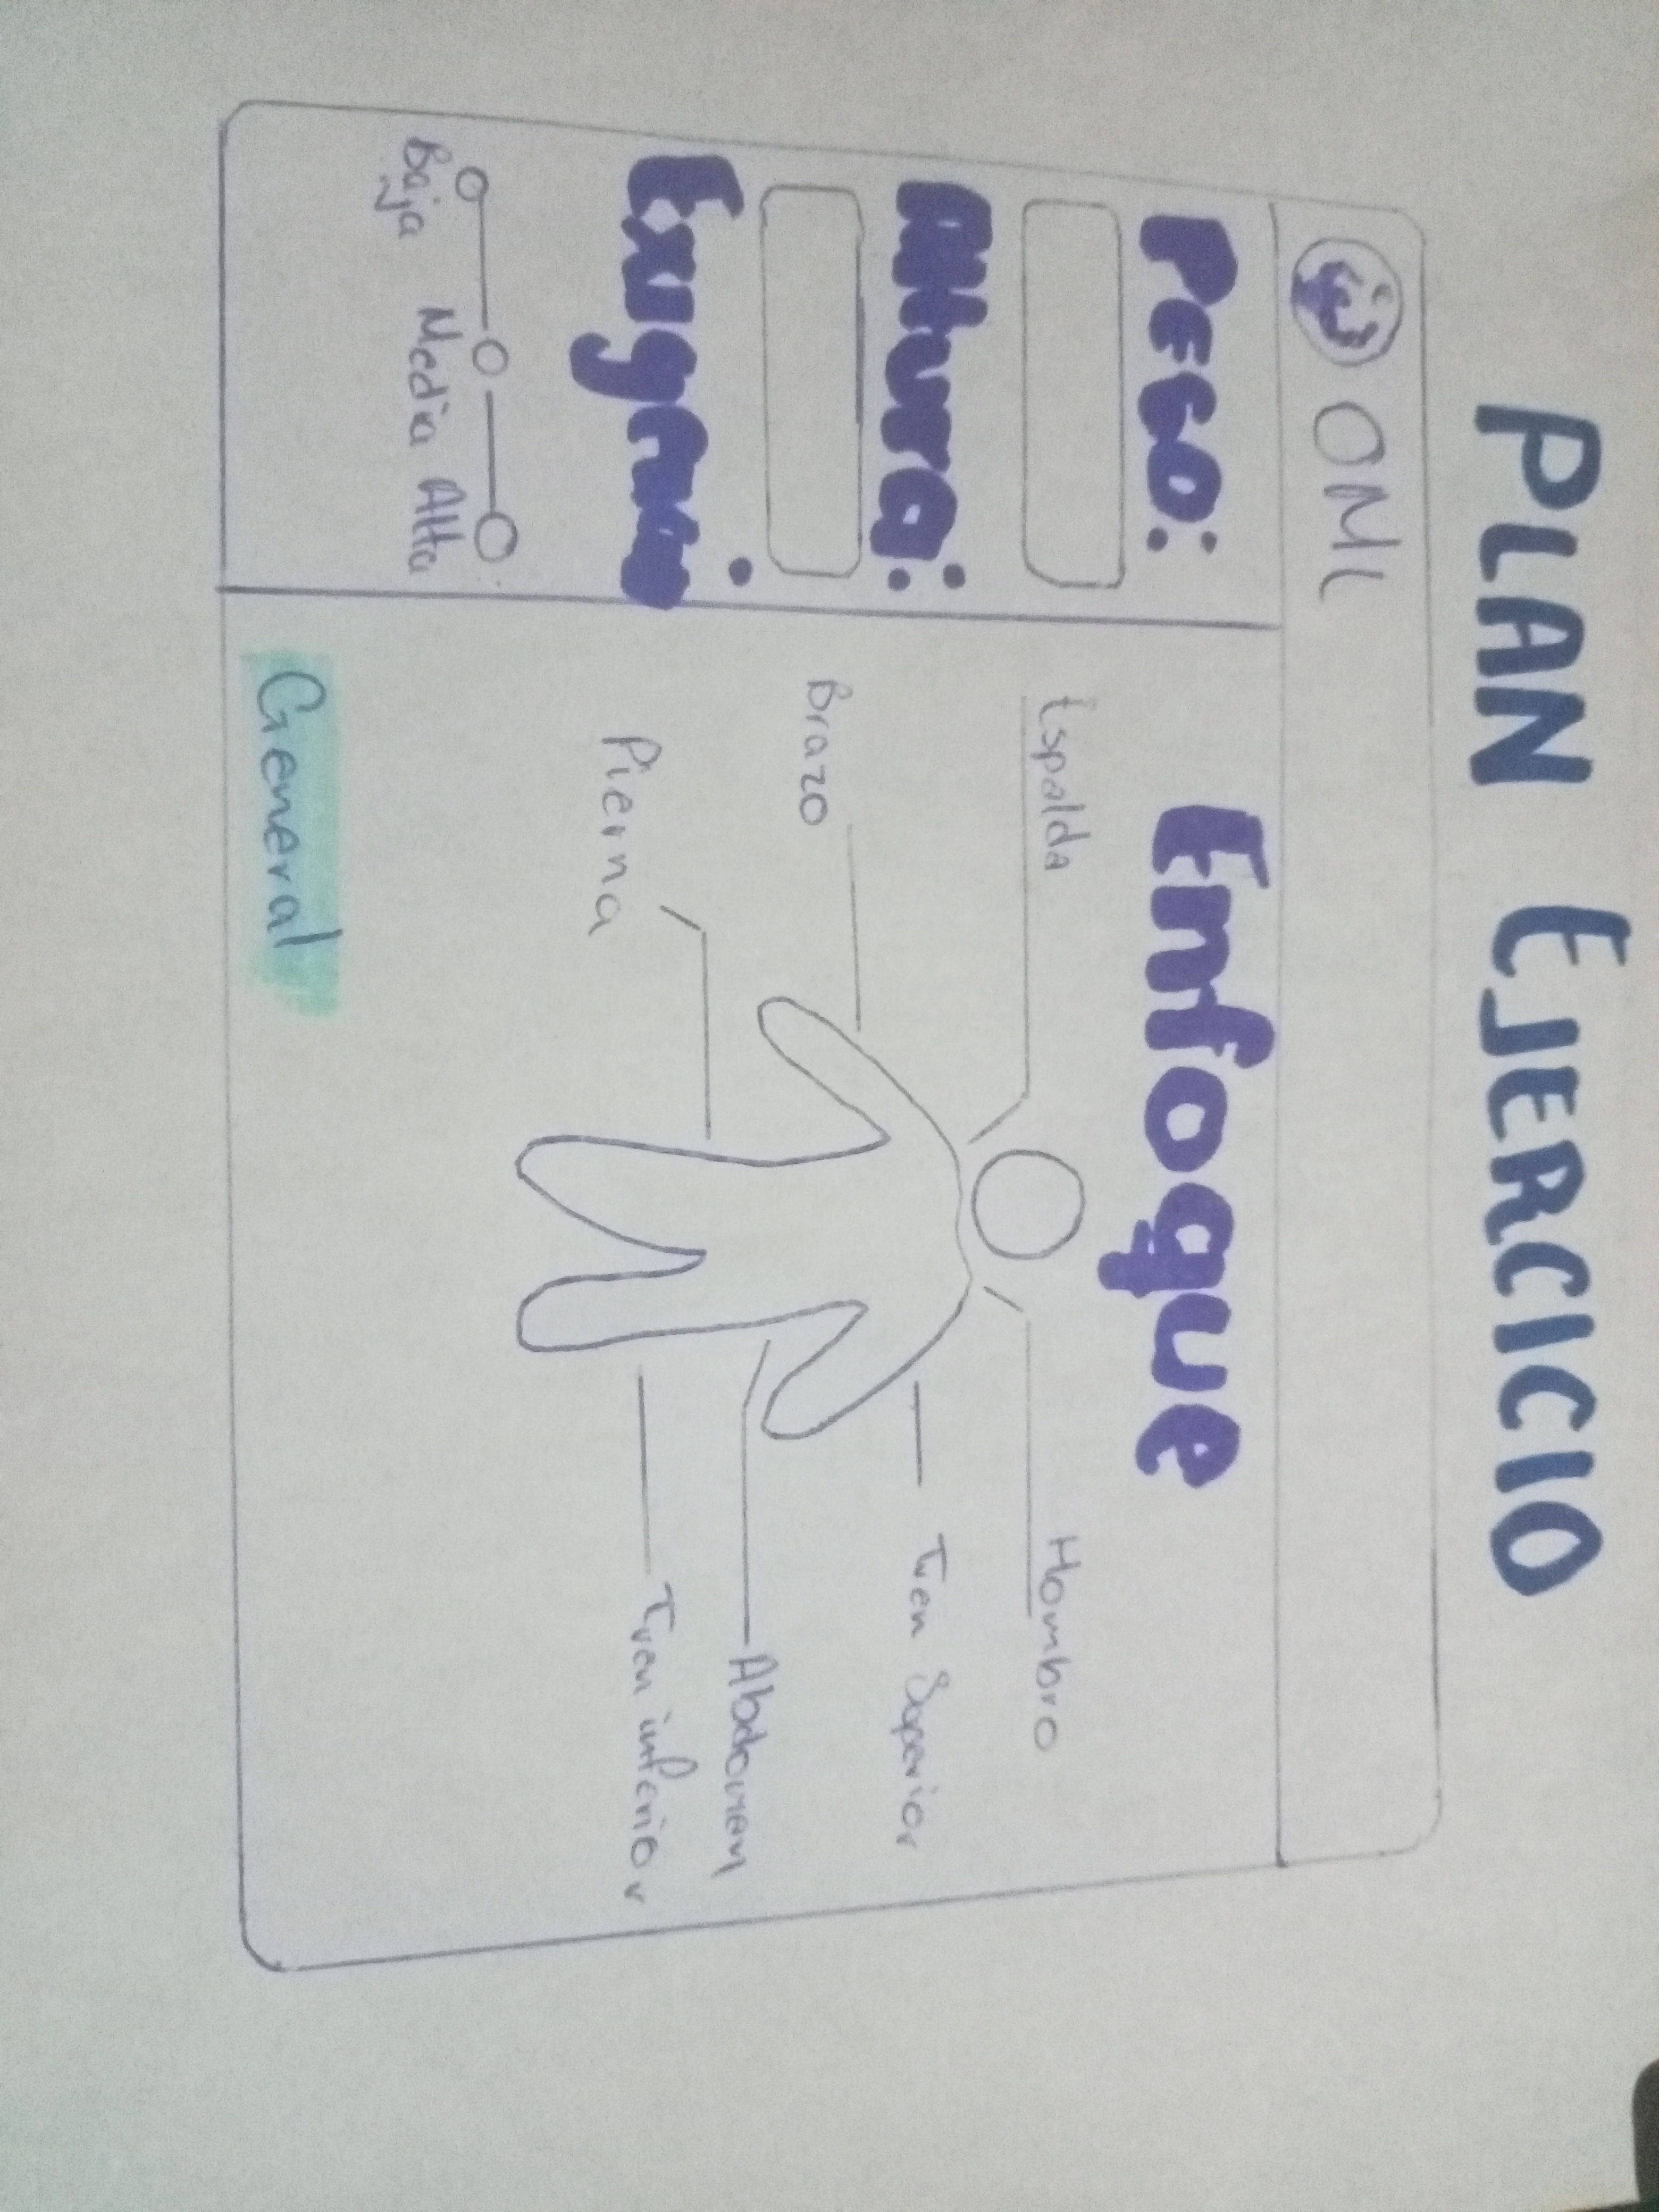 PLAN EJERCICIO
OML
Peso:
Altura:
Exigencia
Baja Media Alta
Enfoque
Espalda
Hombro
Tren Superior
Brazo
Abdomen
Tren inferior
Pierna
General